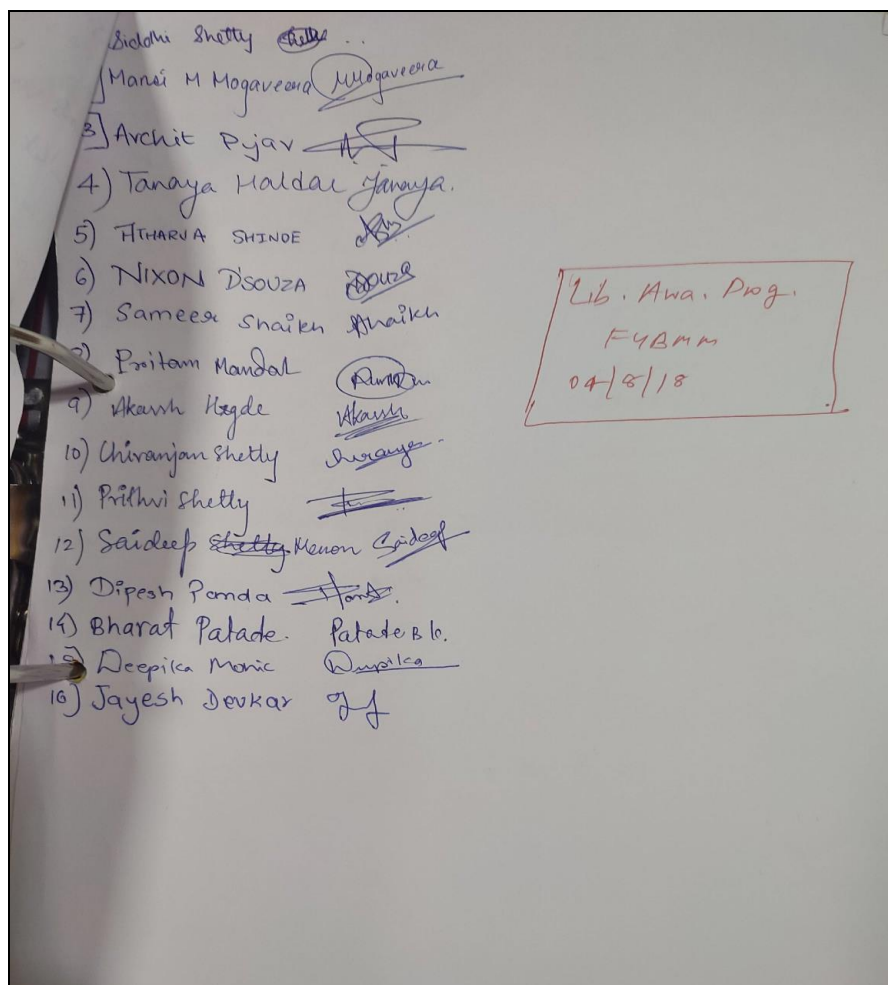 Siddhi Shetty
Mansi M Mogaveera MMogaveera
3] Archit Pujar
4) Tanaya Haldar Tanaya.
5) ATHARVA SHINDE
6) NIXON D'SOUZA
7) Sameer Shaikh Shaikh
Pritam Mandal
9) Akarsh Hegde Akarsh
10) Chiranjan Shetty
11) Prithvi Shetty
12) Saideep Shetty Menon Saideep
13) Dipesh Panda
14) Bharat Patade. Patade B
15) Deepika Deepika
16) Jayesh Devkar
Lib. Awa. Prog.
FYBMM
04/8/18